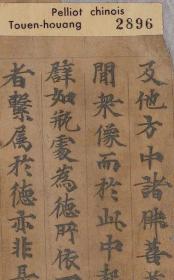 Pelliot chinois
Touen-houang 2896
及他方中諸勝善
聞衆像而於此中
譬如瓶處為德所依
者繫属於德亦非